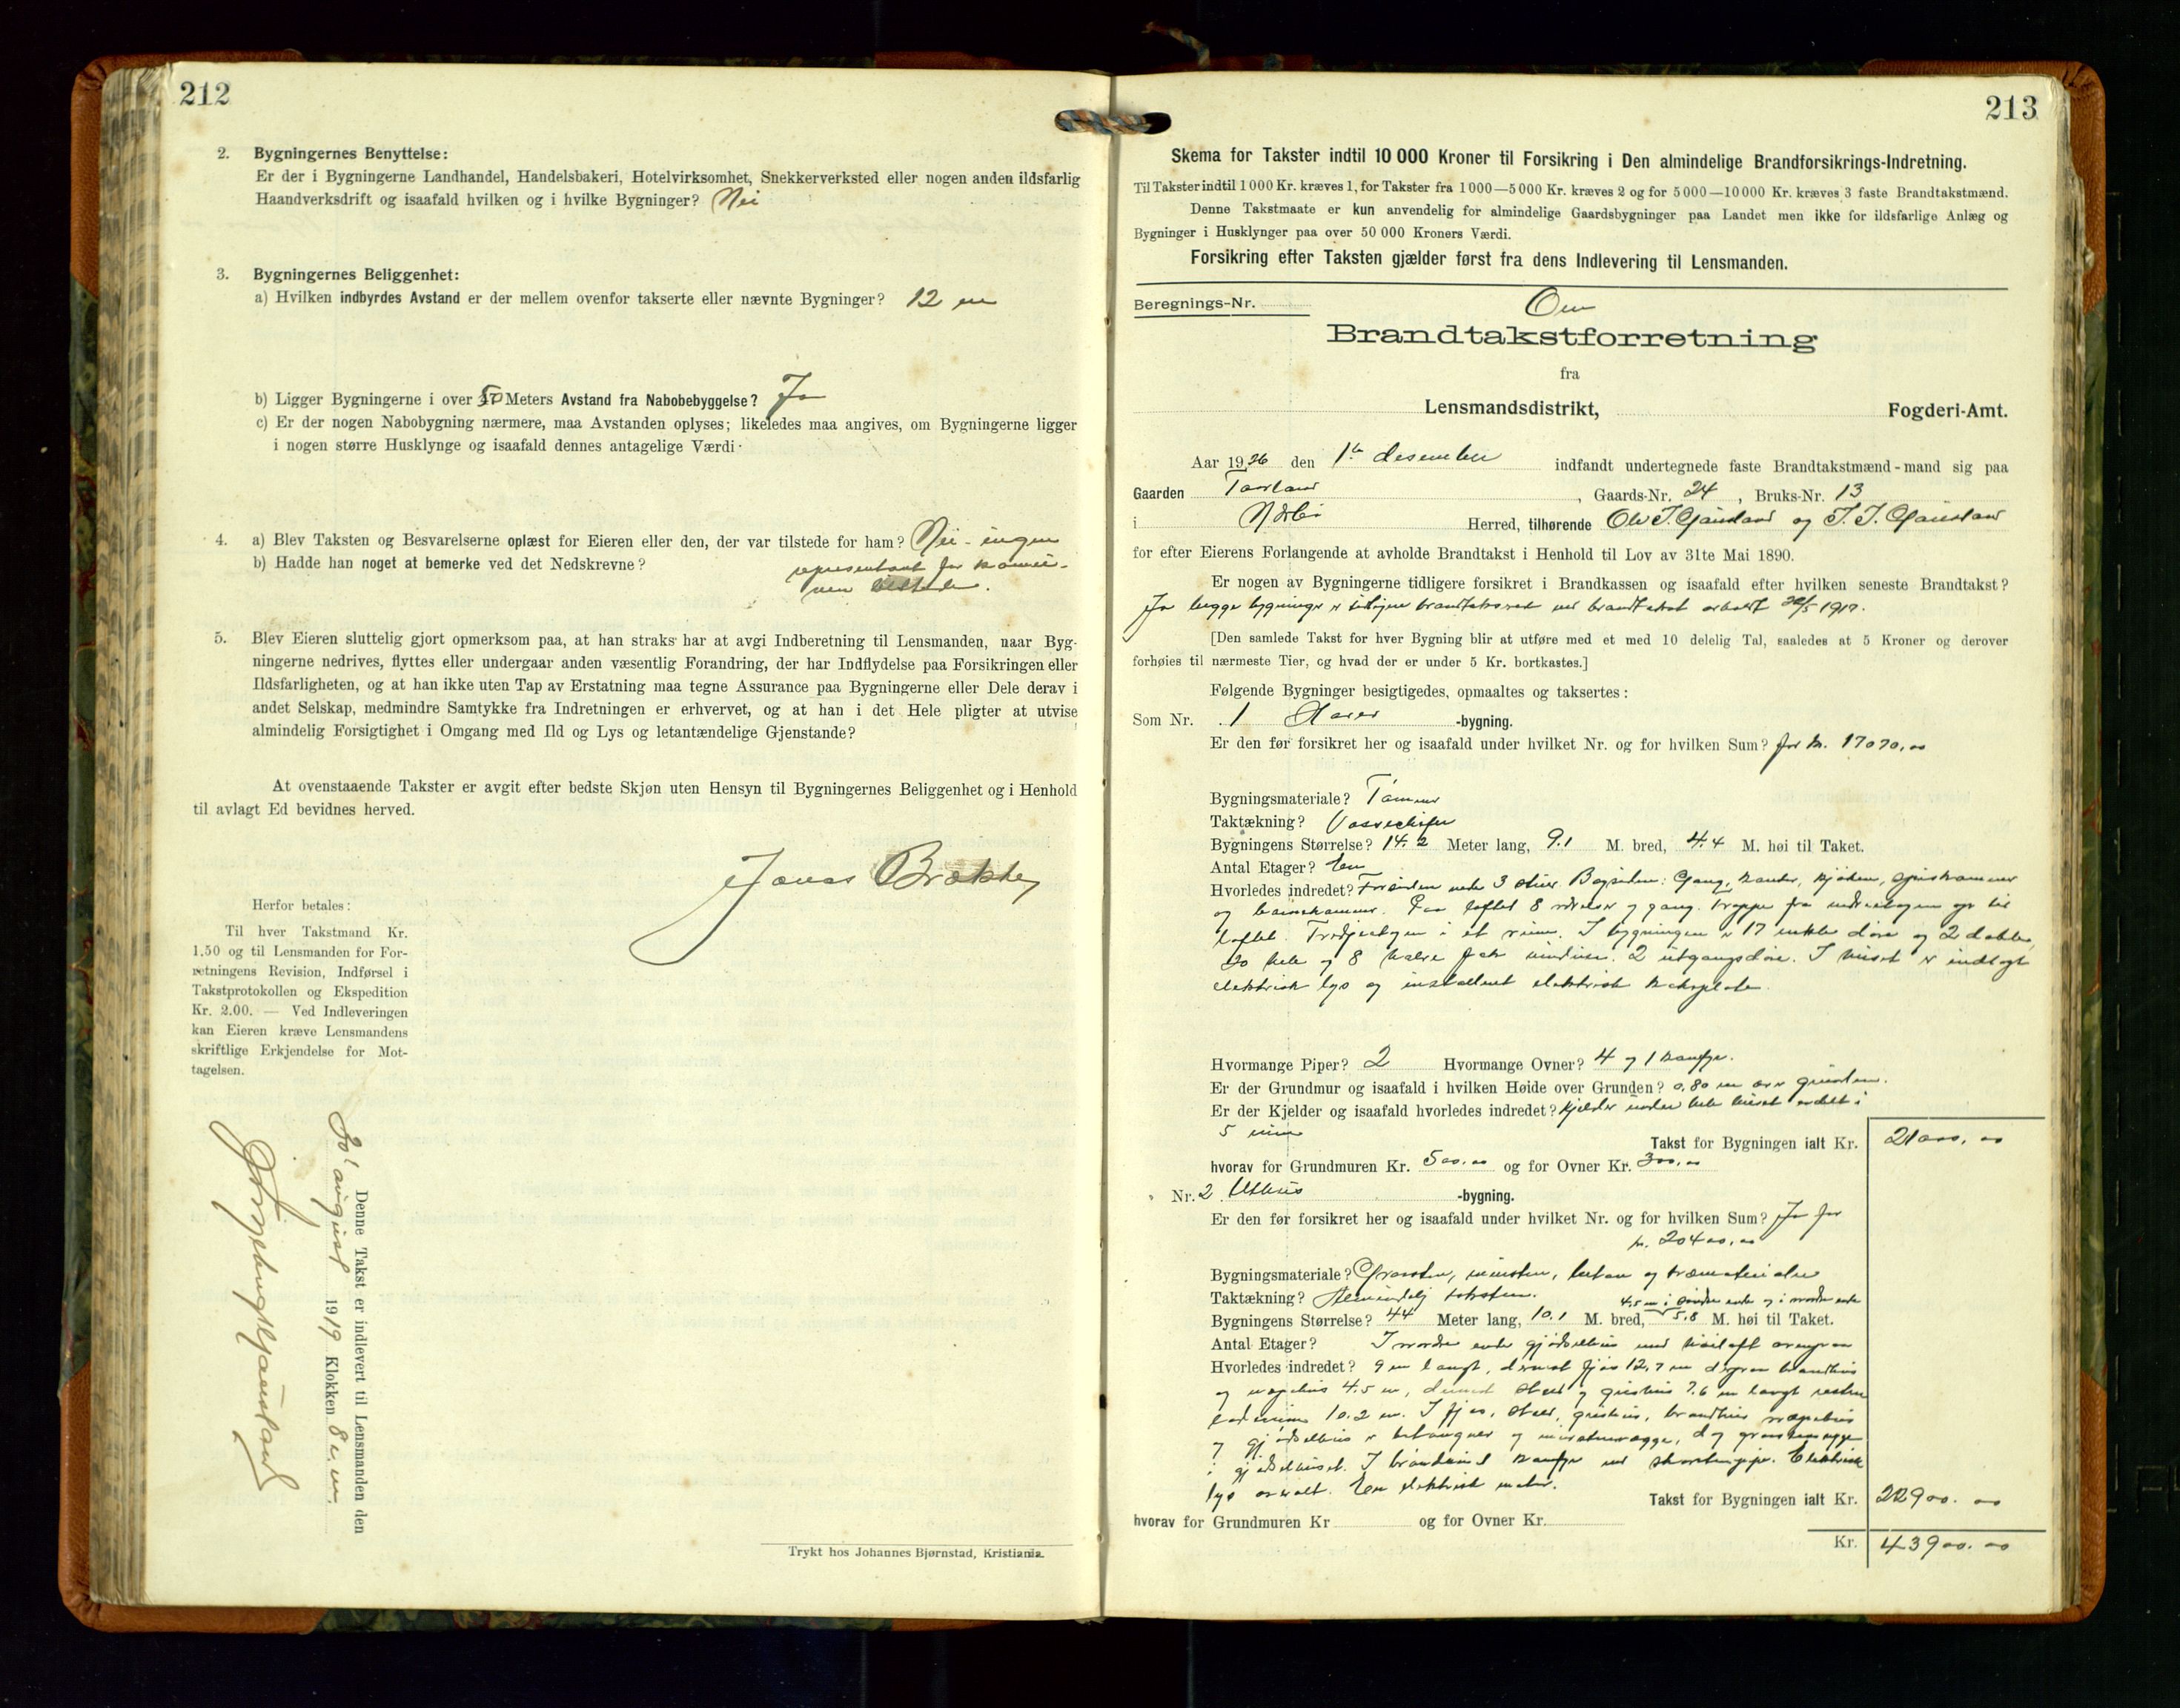 212
2. Bygningernes Benyttelse:
Er der i Bygningerne Landhandel, Handelsbakeri, Hotelvirksomhet, Snekkerverksted eller nogen anden ildsfarlig
Haandverksdrift og isaafald hvilken og i hvilke Bygninger? Nei
3. Bygningernes Beliggenhet:
a) Hvilken indbyrdes Avstand er der mellem ovenfor takserte eller nævnte Bygninger? 12 m
b) Ligger Bygningerne i over 50 Meters Avstand fra Nabobebyggelse? Ja
c) Er der nogen Nabobygning nærmere, maa Avstanden oplyses; likeledes maa angives, om Bygningerne ligger
i nogen større Husklynge og isaafald dennes antagelige Værdi·
4. a) Blev Taksten og Besvarelserne oplæst for Eieren eller den, der var tilstede for ham? Nei - ingen
b) Hadde han noget at bemerke ved det Nedskrevne? representant for
tilstede.
5. Blev Eieren sluttelig gjort opmerksom paa, at han straks har at avgi Indberetning til Lensmanden, naar Byg-
ningerne nedrives, flyttes eller undergaar anden væsentlig Forandring, der har Indflydelse paa Forsikringen eller
Ildsfarligheten, og at han ikke uten Tap av Erstatning maa tegne Assurance paa Bygningerne eller Dele derav i
andet Selskap, medmindre Samtykke fra Indretningen er erhvervet, og at han i det Hele pligter at utvise
almindelig Forsigtighet i Omgang med Ild og Lys og letantændelige Gjenstande?
At ovenstaaende Takster er avgit efter bedste Skjøn uten Hensyn til Bygningernes Beliggenhet og i Henhold
til avlagt Ed bevidnes herved.
Jonas
Herfor betales:
Til hver Takstmand Kr.
1.50 og til Lensmanden for For-
retningens Revision, Indførsel i
Takstprotokollen og Ekspedition
Kr. 2.00. — Ved Indleveringen
kan Eieren kræve Lensmandens
skriftlige Erkjendelse for Mot-
tagelsen.
Denne Takst er indlevert til Lensmanden den
august 1919 Klokken 8
Trykt hos Johannes Bjørnstad, Kristiania.
213
Skema for Takster indtil 10 000 Kroner til Forsikring i Den almindelige Brandforsikrings-Indretning.
Til Takster indtil 1 000 Kr. kræves 1, for Takster fra 1 000—5 000 Kr. kræves 2 og for 5 000—10 000 Kr. kræves 3 faste Brandtakstmænd.
Denne Takstmaate er kun anvendelig for almindelige Gaardsbygninger paa Landet men ikke for ildsfarlige Anlæg og
Bygninger i Husklynger paa over 50 000 Kroners Værdi.
Forsikring efter Taksten gjælder først fra dens Indlevering til Lensmanden.
Beregnings-Nr.
Om
Brandtakstforretning
fra
Lensmandsdistrikt, Fogderi-Amt.
Aar 1926 den 1ste desember indfandt undertegnede faste Brandtakstmænd-mand sig paa
Gaarden , Gaards-Nr. 24 , Bruks-Nr. 13
i Nærbø Herred, tilhørende Ole T. Gausland og T. T. Gausland
for efter Eierens Forlangende at avholde Brandtakst i Henhold til Lov av 31te Mai 1890.
Er nogen av Bygningerne tidligere forsikret i Brandkassen og isaafald efter hvilken seneste Brandtakst?
Ja begge bygninger er tidligere brandtaksert ved brandtakst avholdt
[Den samlede Takst for hver Bygning blir at utføre med et med 10 delelig Tal, saaledes at 5 Kroner og derover
forhøies til nærmeste Tier, og hvad der er under 5 Kr. bortkastes.]
Følgende Bygninger besigtigedes, opmaaltes og taksertes:
Som Nr. 1 -bygning.
Er den før forsikret her og isaafald under hvilket Nr. og for hvilken Sum? for kr. 17070,00
Bygningsmateriale? Tømmer
Taktækning?
Bygningens Størrelse? 14.2 Meter lang, 9.1 M. bred, 4.4 M. høi til Taket.
Antal Etager? En
Hvorledes indredet? Forsiden nede 3 stuer. Baksiden: Gang, kammer, kjøkken, spiskammer
og barnekammer. Paa loftet 8 værelser og gang. Trappe fra underetagen op til
loftet. Tredjeetagen i et rum. I bygningen er 17 enkle døre og 2 doble,
20 hele og 8 halve fag vinduer. 2 utgangsdøre. I huset er indlagt
elektrisk lys og installeret elektrisk kokeplate.
Hvormange Piper? 2 Hvormange Ovner? 4 og 1 komfyr.
Er der Grundmur og isaafald i hvilken Høide over Grunden? 0.80 m over grunden.
Er der Kjelder og isaafald hvorledes indredet? Kjelder under hele huset avdelt i
5 rum
Takst for Bygningen ialt Kr. 21000,00
hvorav for Grundmuren Kr. 500.00 og for Ovner Kr. 300,00
Nr. 2 Uthus -bygning.
Er den før forsikret her og isaafald under hvilket Nr. og for hvilken Sum? Ja for
kr. 20400,00
Bygningsmateriale? Graasten, mursten, beton og træmaterialer
Taktækning? Almindelig taksten.
4,5 m i søndre ende og i nordre ende
Bygningens Størrelse? 44 Meter lang, 10.1 M. bred, 5.8 M. høi til Taket.
Antal Etager? I nordre ende gjødselhus med høiloft ovenpaa
Hvorledes indredet? 9 m langt, dernæst fjøs 12.7 m brandhus
og vognhus 4.5 m, dernæst stal og grishus 7.6 m langt resten
laderum 10.2 m. I fjøs, stal, grishus, brandhus vognhus
og gjødselhus er betongulv og murstensvegge,
i gjødselhuset. I brandhuset komfyr med skorstenspipe. Elektrisk
lys overalt. En elektrisk motor.
Takst for Bygningen ialt Kr. 22900.00
hvorav for Grundmuren Kr og for Ovner Kr.
Kr. 43900.00